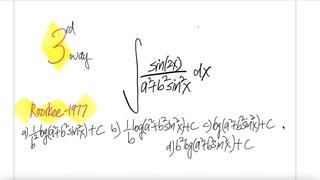 3rd way
∫ sin(2x) / (a²+b²sin²x) dx
Roorkee-1977
a) 1/b² log(a²+b²sin²x)+C b) 1/b log(a²+b²sin²x)+C c) log(a²+b²sin²x)+C.
d) b² log(a²+b²sin²x)+C